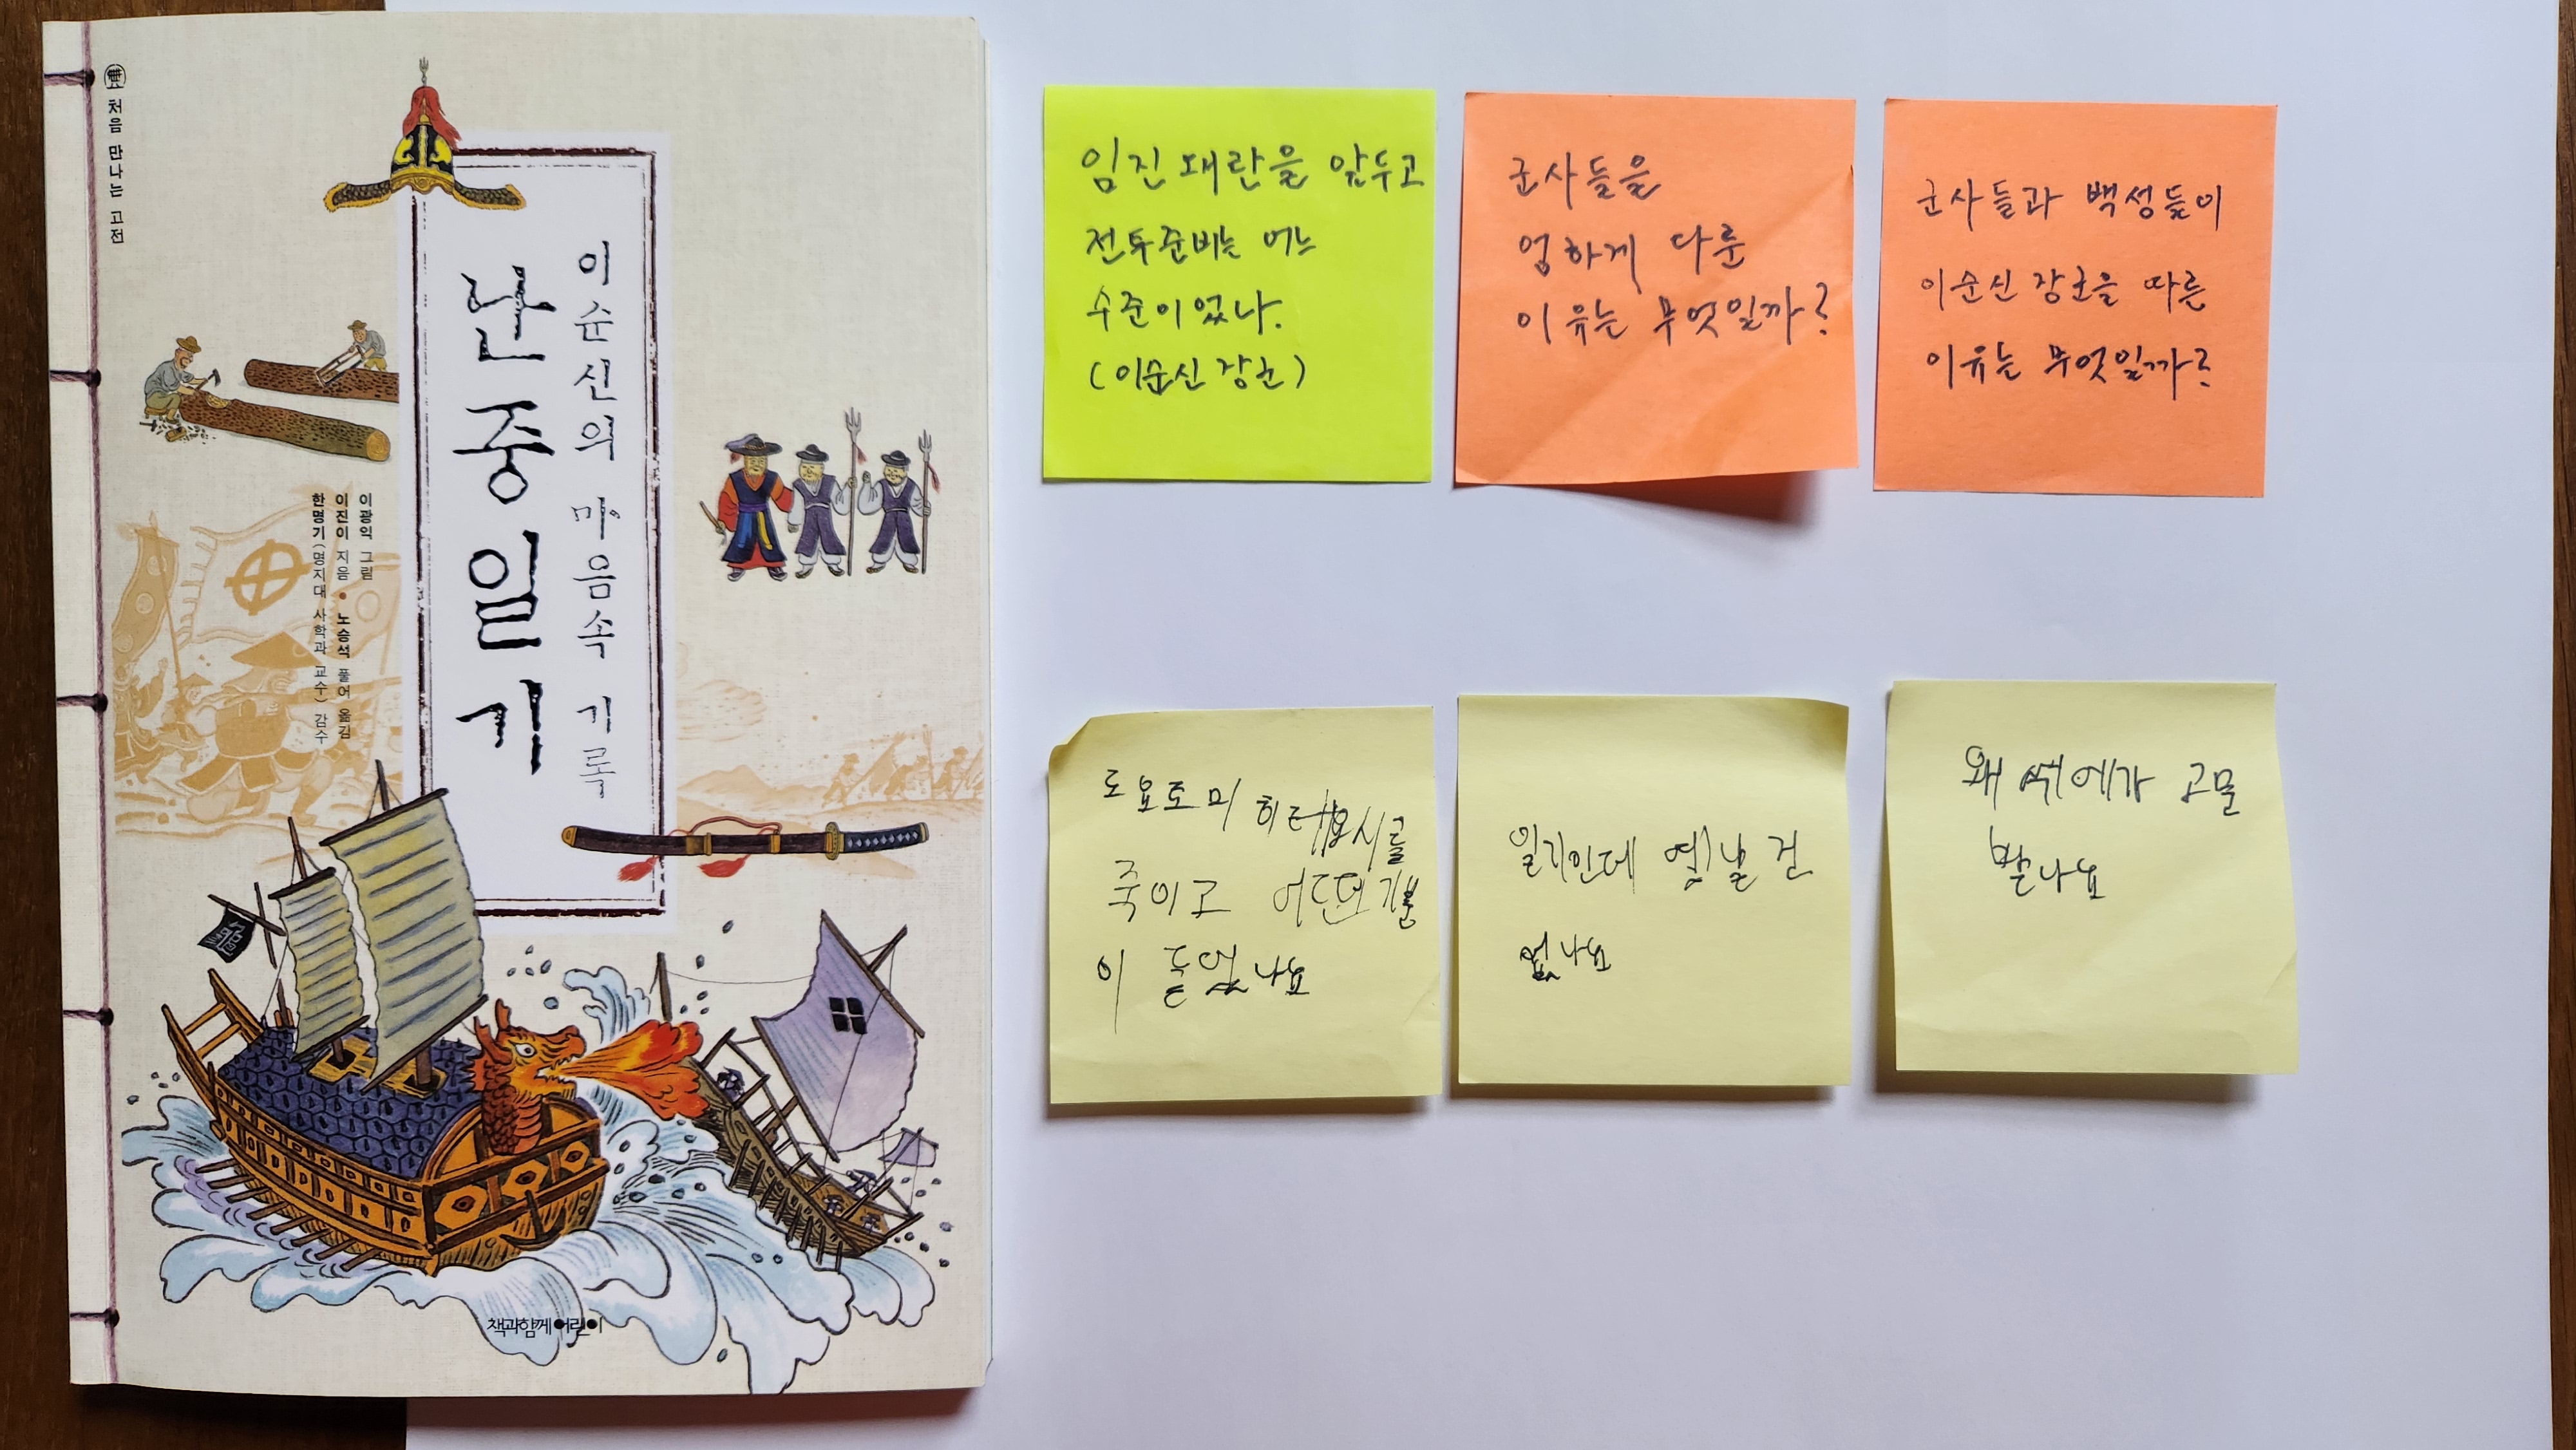 典 처음 만나는 고전
이순신의 마음속 기록
난중일기
이광익 그림
이진이 지음 • 노승석 풀어 옮김
한명기(명지대 사학과 교수) 감수
책과함께어린이
임진왜란을 앞두고
전투준비는 어느
수준이었나.
(이순신 장군)
군사들을
엄하게 다룬
이유는 무엇일까?
군사들과 백성들이
이순신 장군을 따른
이유는 무엇일까?
도요토미 히데요시를
죽이고 어떤 기분
이 들었나요
일기인데 옛날 건
없나요
왜 가 고문
받나요